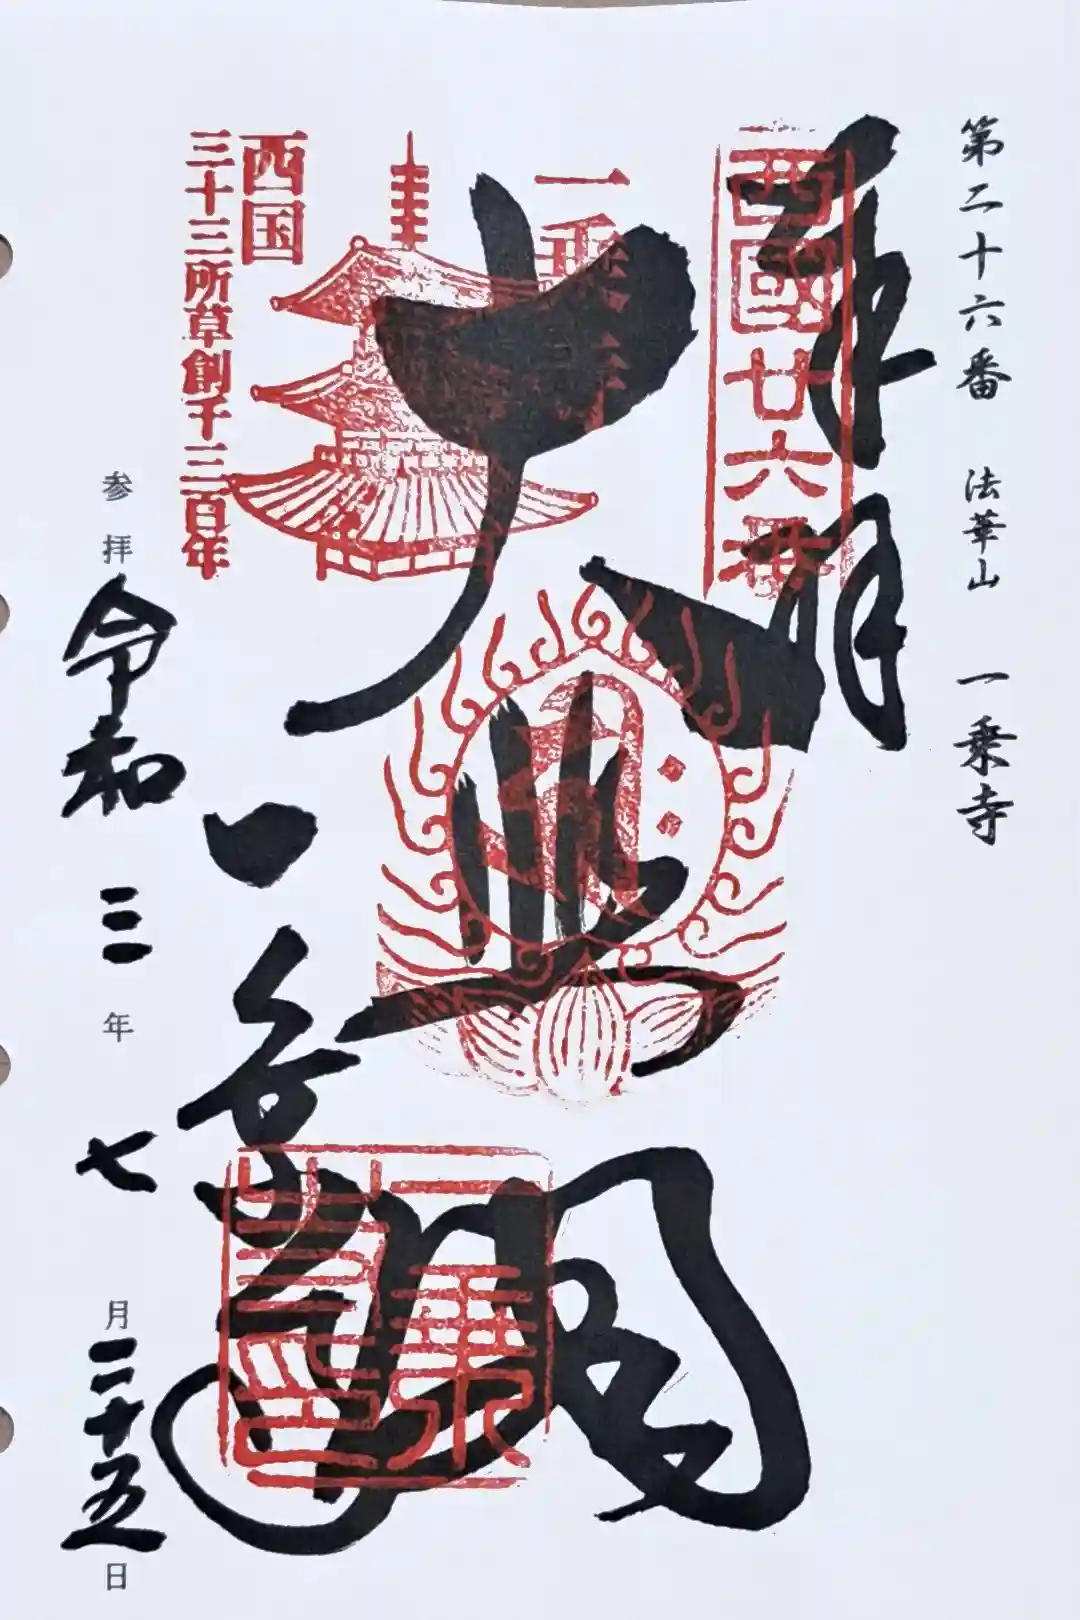 第二十六番 法華山 一乗寺
奉拝
西國廿六番
大悲閣
一乗寺
西国
三十三所草創千三百年
一乗寺
一乗寺印
参拝 令和三年七月二十五日